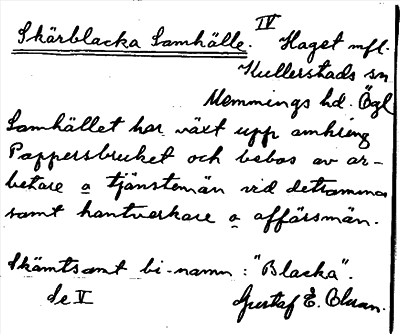 Skärblacka Samhälle. IV Haget mfl.
Kullerstads sn
Memmings hd. Ögl
Samhället har växt upp omkring
Pappersbruket och bebos av ar-
betare o tjänstemän vid detsamma
samt hantverkare o affärsmän.
Skämtsamt bi-namn: "Blacka".
Se V Gustaf E. Olsson.